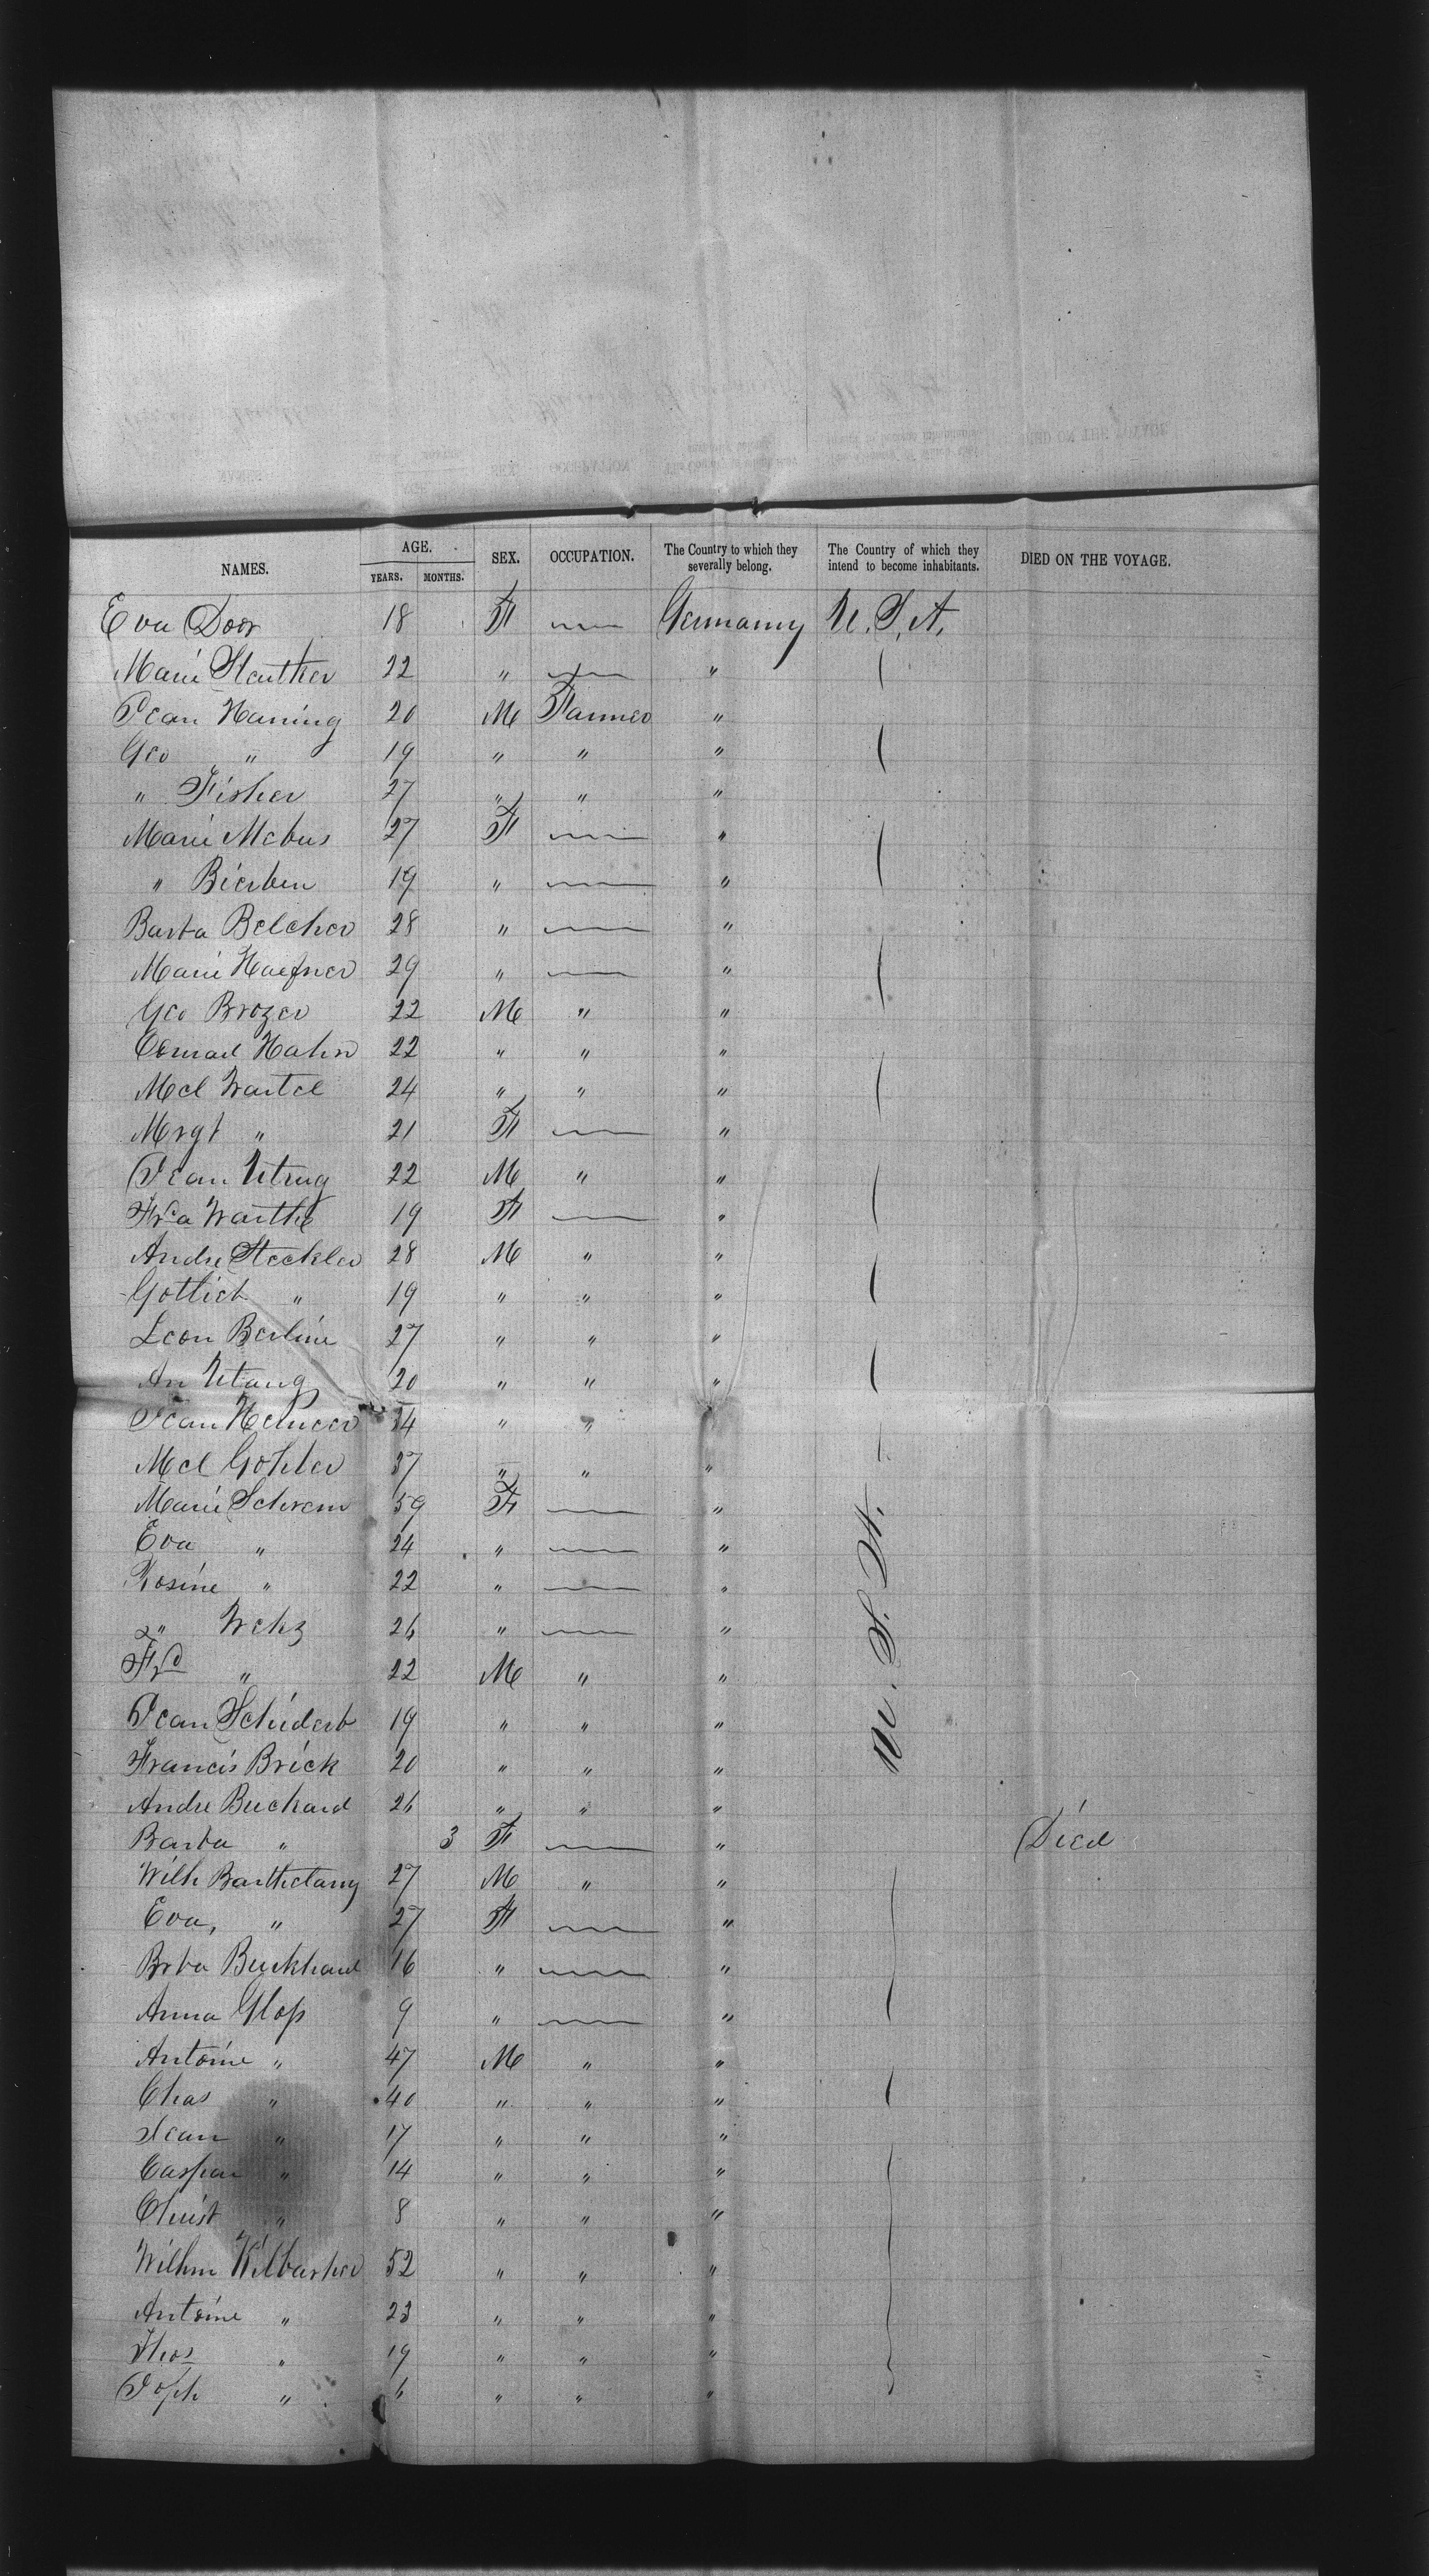 NAMES. AGE. YEARS. MONTHS. SEX. OCCUPATION. The Country to which they severally belong. The Country of which they intend to become inhabitants. DIED ON THE VOYAGE.
Eva Door 18 F — Germany U.S.A.
Marie Stauther 22 " — "
Jean Haning 20 M Farmer "
Geo " 19 " " "
" Fisher 27 " " "
Marie Mebus 27 F — "
" Bierben 19 " — "
Barba Belcher 28 " — "
Marie Haefner 29 " — "
Geo Brozer 22 M " "
Conrad Hahn 22 " " "
Mcl Wartel 24 " " "
Mrgt " 21 F — "
Jean Utrug 22 M " "
Frca Warthe 19 F — "
Andre Steckler 28 M " "
Gottlieb " 19 " " "
Leon Berline 27 " " "
An Utang 20 " " "
Jean 34 " " "
Mcl Gohler 37 " " "
Marie Schrem 59 F — "
Eva " 24 " — "
Rosine " 22 " — "
" Wehz 26 " — "
Frd " 22 M " "
Jean Schidert 19 " " " U.S.A.
Francis Brick 20 " " "
Andre Buchard 26 " " "
Barba " 3 F — " Died
Wilh Barthetany 27 M " "
Eva, " 27 F — "
Brba Burkhard 16 " — "
Anna Glop 9 " — "
Antoine " 47 M " "
Chas " 40 " " "
Jean " 17 " " "
Caspar " 14 " " "
Christ " 8 " " "
Wilhm Kilbasher 52 " " "
Antoine " 23 " " "
Thos " 19 " " "
Joph " 6 " " "